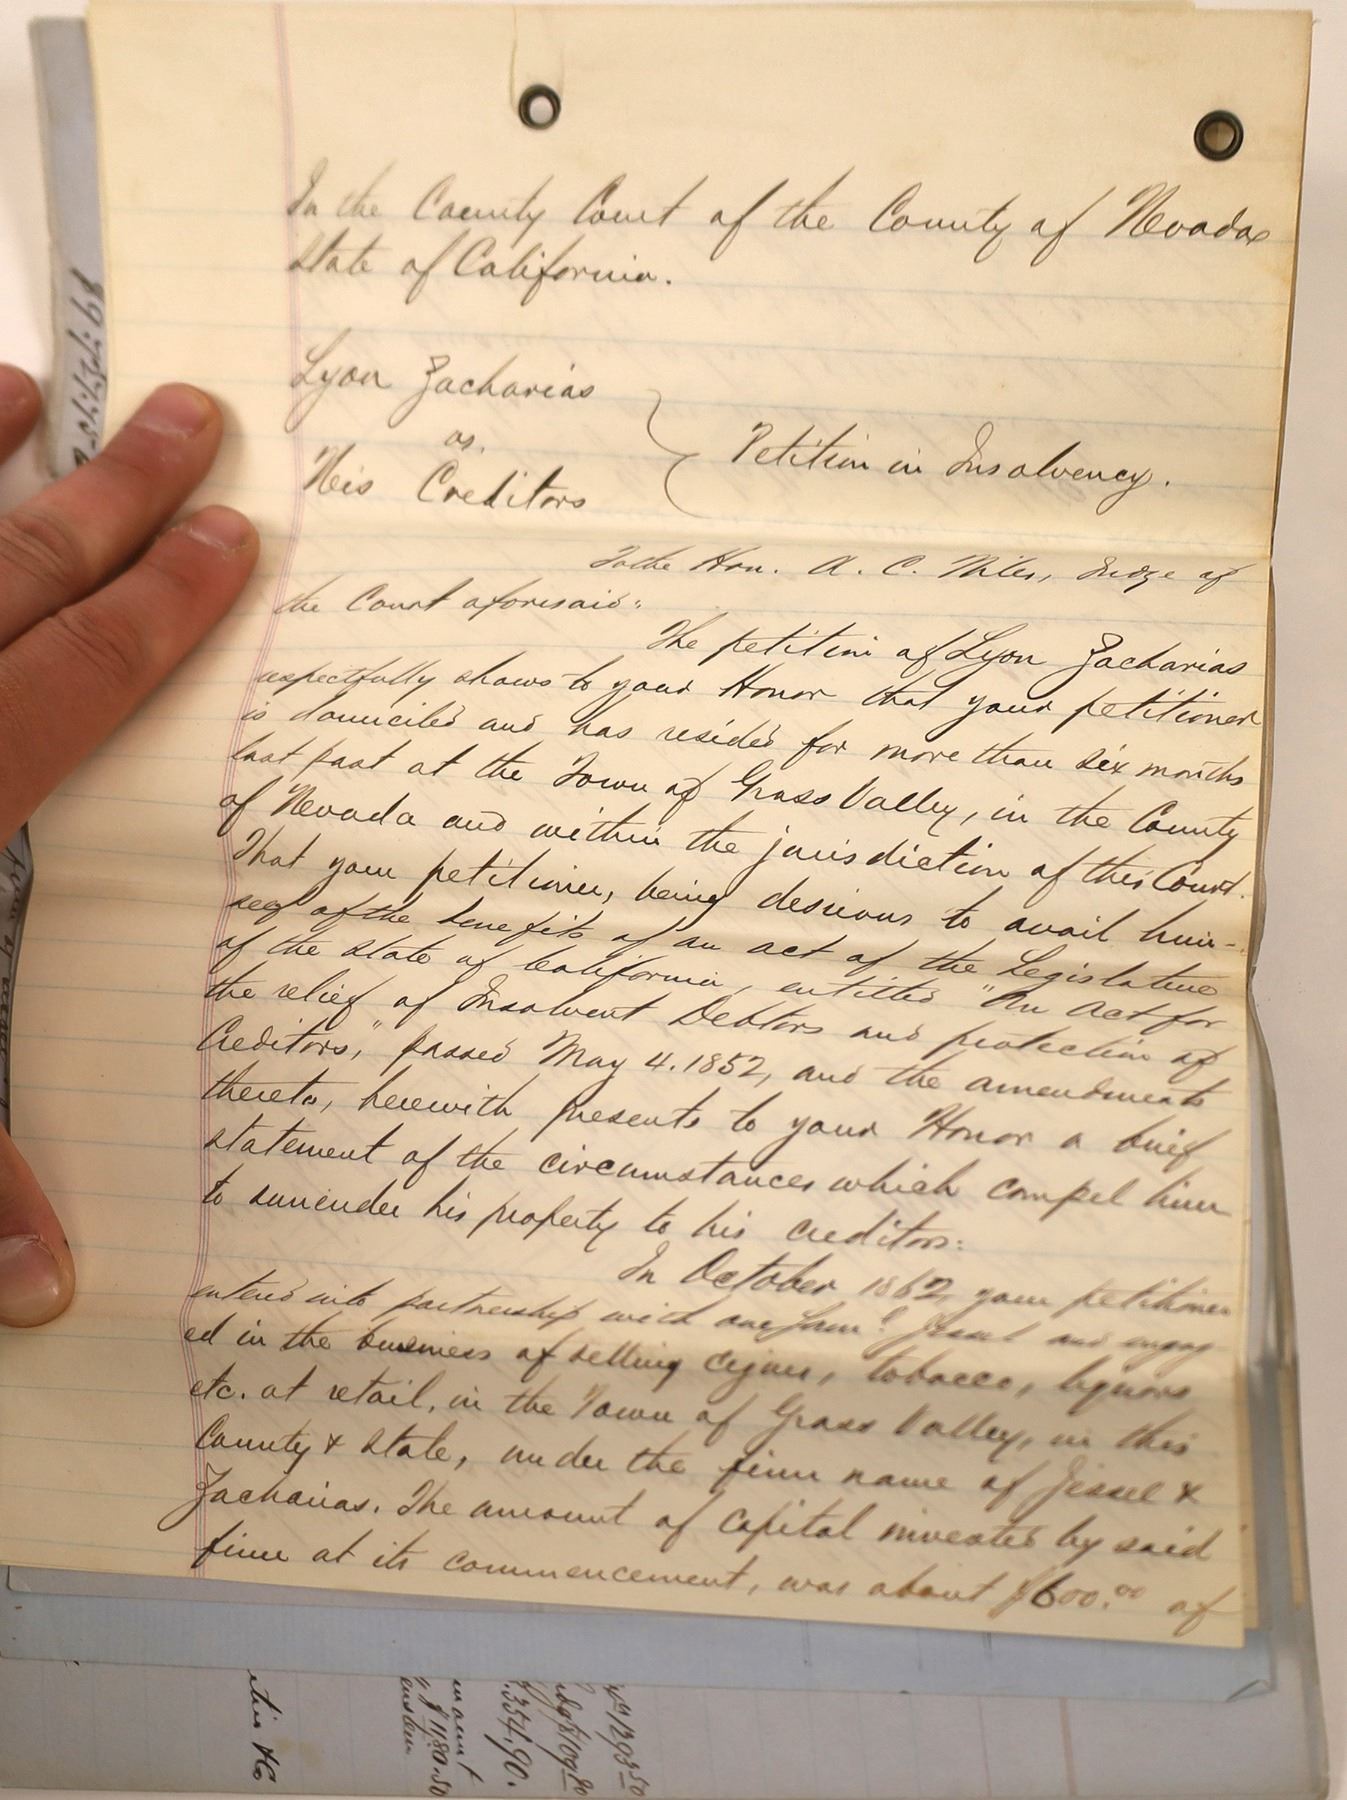 In the County Court of the County of Nevada
State of California.
Lyon Zacharias
vs.
His Creditors
Petition in Insolvency.
To the Hon. A. C. Niles, Judge of
the Court aforesaid:
The petition of Lyon Zacharias
respectfully shows to your Honor that your petitioner
is domiciled and has resided for more than six months
last past at the Town of Grass Valley, in the County
of Nevada and within the jurisdiction of this Court.
That your petitioner, being desirous to avail him-
self of the benefits of an act of the Legislature
of the State of California, entitled "An Act for
the relief of Insolvent Debtors and protection of
Creditors," passed May 4. 1852, and the amendments
thereto, herewith presents to your Honor a brief
statement of the circumstances which compel him
to surrender his property to his creditors:
In October 1862 your petitioner
entered into partnership with one Jessel and engag-
ed in the business of selling cigars, tobacco, liquors
etc. at retail, in the Town of Grass Valley, in this
County & State, under the firm name of Jessel &
Zacharias. The amount of capital invested by said
firm at its commencement, was about $600.00 of